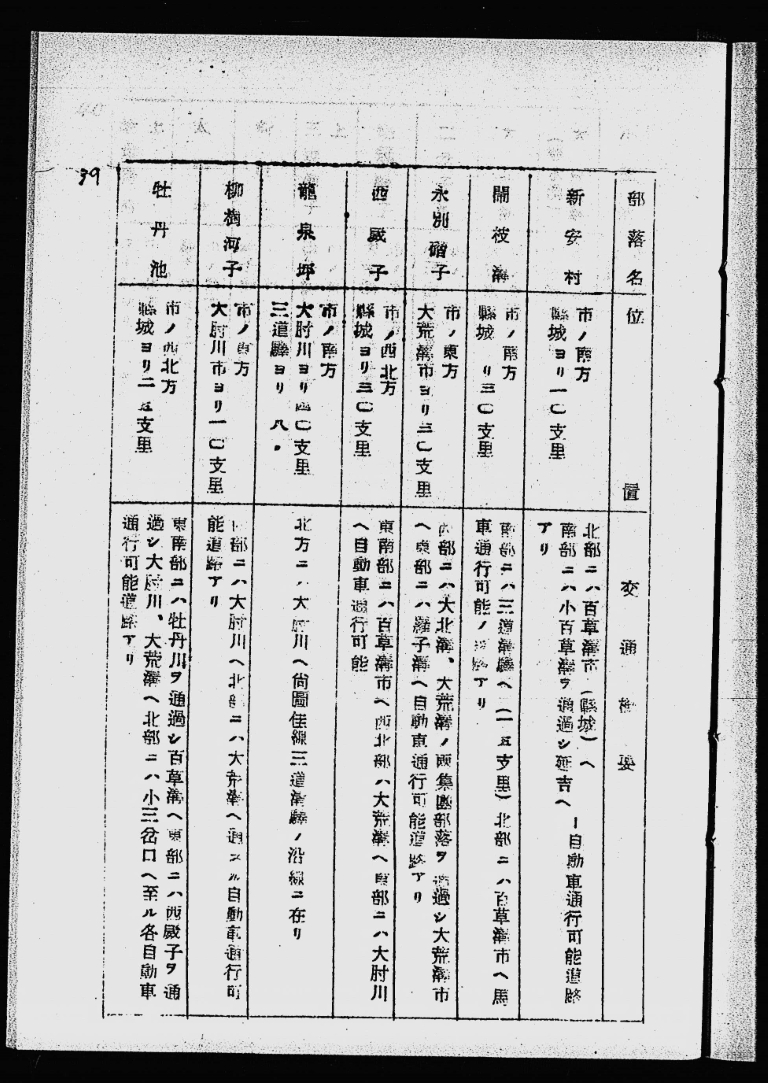 39
部落名
位置
交通概要
新安村
市ノ南方
縣城ヨリ一〇支里
北部ニハ百草溝市(縣城)ヘ
南部ニハ小百草溝ヲ通過シ延吉ヘ
自動車通行可能道路
アリ
開拔溝
市ノ南方
縣城 リ三〇支里
南部ニハ三道溝驛ヘ(一五支里)北部ニハ百草溝市ヘ馬
車通行可能ノ道路アリ
永別磖子
市ノ東方
大荒溝市ヨリ三〇支里
西部ニハ大北溝、大荒溝ノ兩集團部落ヲ通過シ大荒溝市
ヘ東部ニハ 子溝ヘ自動車通行可能道路アリ
西崴子
市ノ西北方
縣城ヨリ三〇支里
東南部ニハ百草溝市ヘ西北部ハ大荒溝ヘ東部ニハ大肚川
ヘ自動車通行可能
龍泉坪
市ノ南方
大肚川ヨリ四〇支里
三道驛ヨリ 八・
北方ニハ大肚川ヘ尚圖佳線三道溝驛ノ沿線ニ在リ
柳樹河子
市ノ東方
大肚川市ヨリ一〇支里
部ニハ大肚川ヘ北部ニハ大荒溝ヘ通スル自動車通行可
能道路アリ
牡丹池
市ノ西北方
縣城ヨリ二五支里
東南部ニハ牡丹川ヲ通過シ百草溝ヘ東部ニハ西崴子ヲ通
過シ大肚川、大荒溝ヘ北部ニハ小三岔口ヘ至ル各自動車
通行可能道路アリ